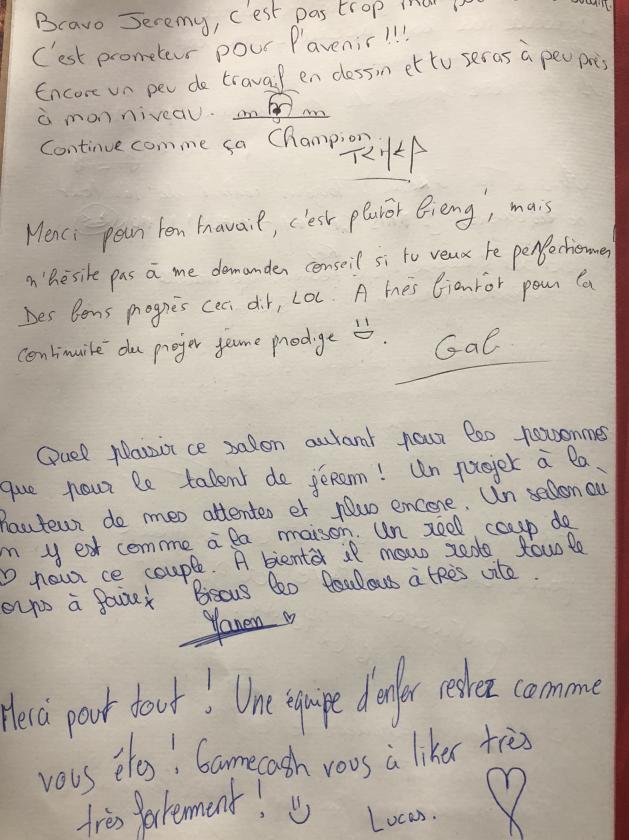 Bravo Jeremy, c'est pas trop mal
C'est prometeur pour l'avenir!!!
Encore un peu de travail en dessin et tu seras à peu près
à mon niveau.
Continue comme ça Champion.
Merci pour ton travail, c'est plutôt bieng', mais
n'hésite pas à me demander conseil si tu veux te perfectionner
Des bons progrès ceci dit, LOL. A très bientôt pour la
continuité du projet jeune prodige
Gal
Quel plaisir ce salon autant pour les personnes
que pour le talent de jérem! Un projet à la
hauteur de mes attentes et plus encore. Un salon où
n y est comme à la maison. Un réal coup de
♡ pour ce couple. A bientôt il nous reste tous le
orps à faire! Bisous les loulous à très vite.
Manon ♡
Merci pout tout! Une équipe d'enfer restez comme
vous êtes! Gamecash vous à liker très
très fortement! Lucas.